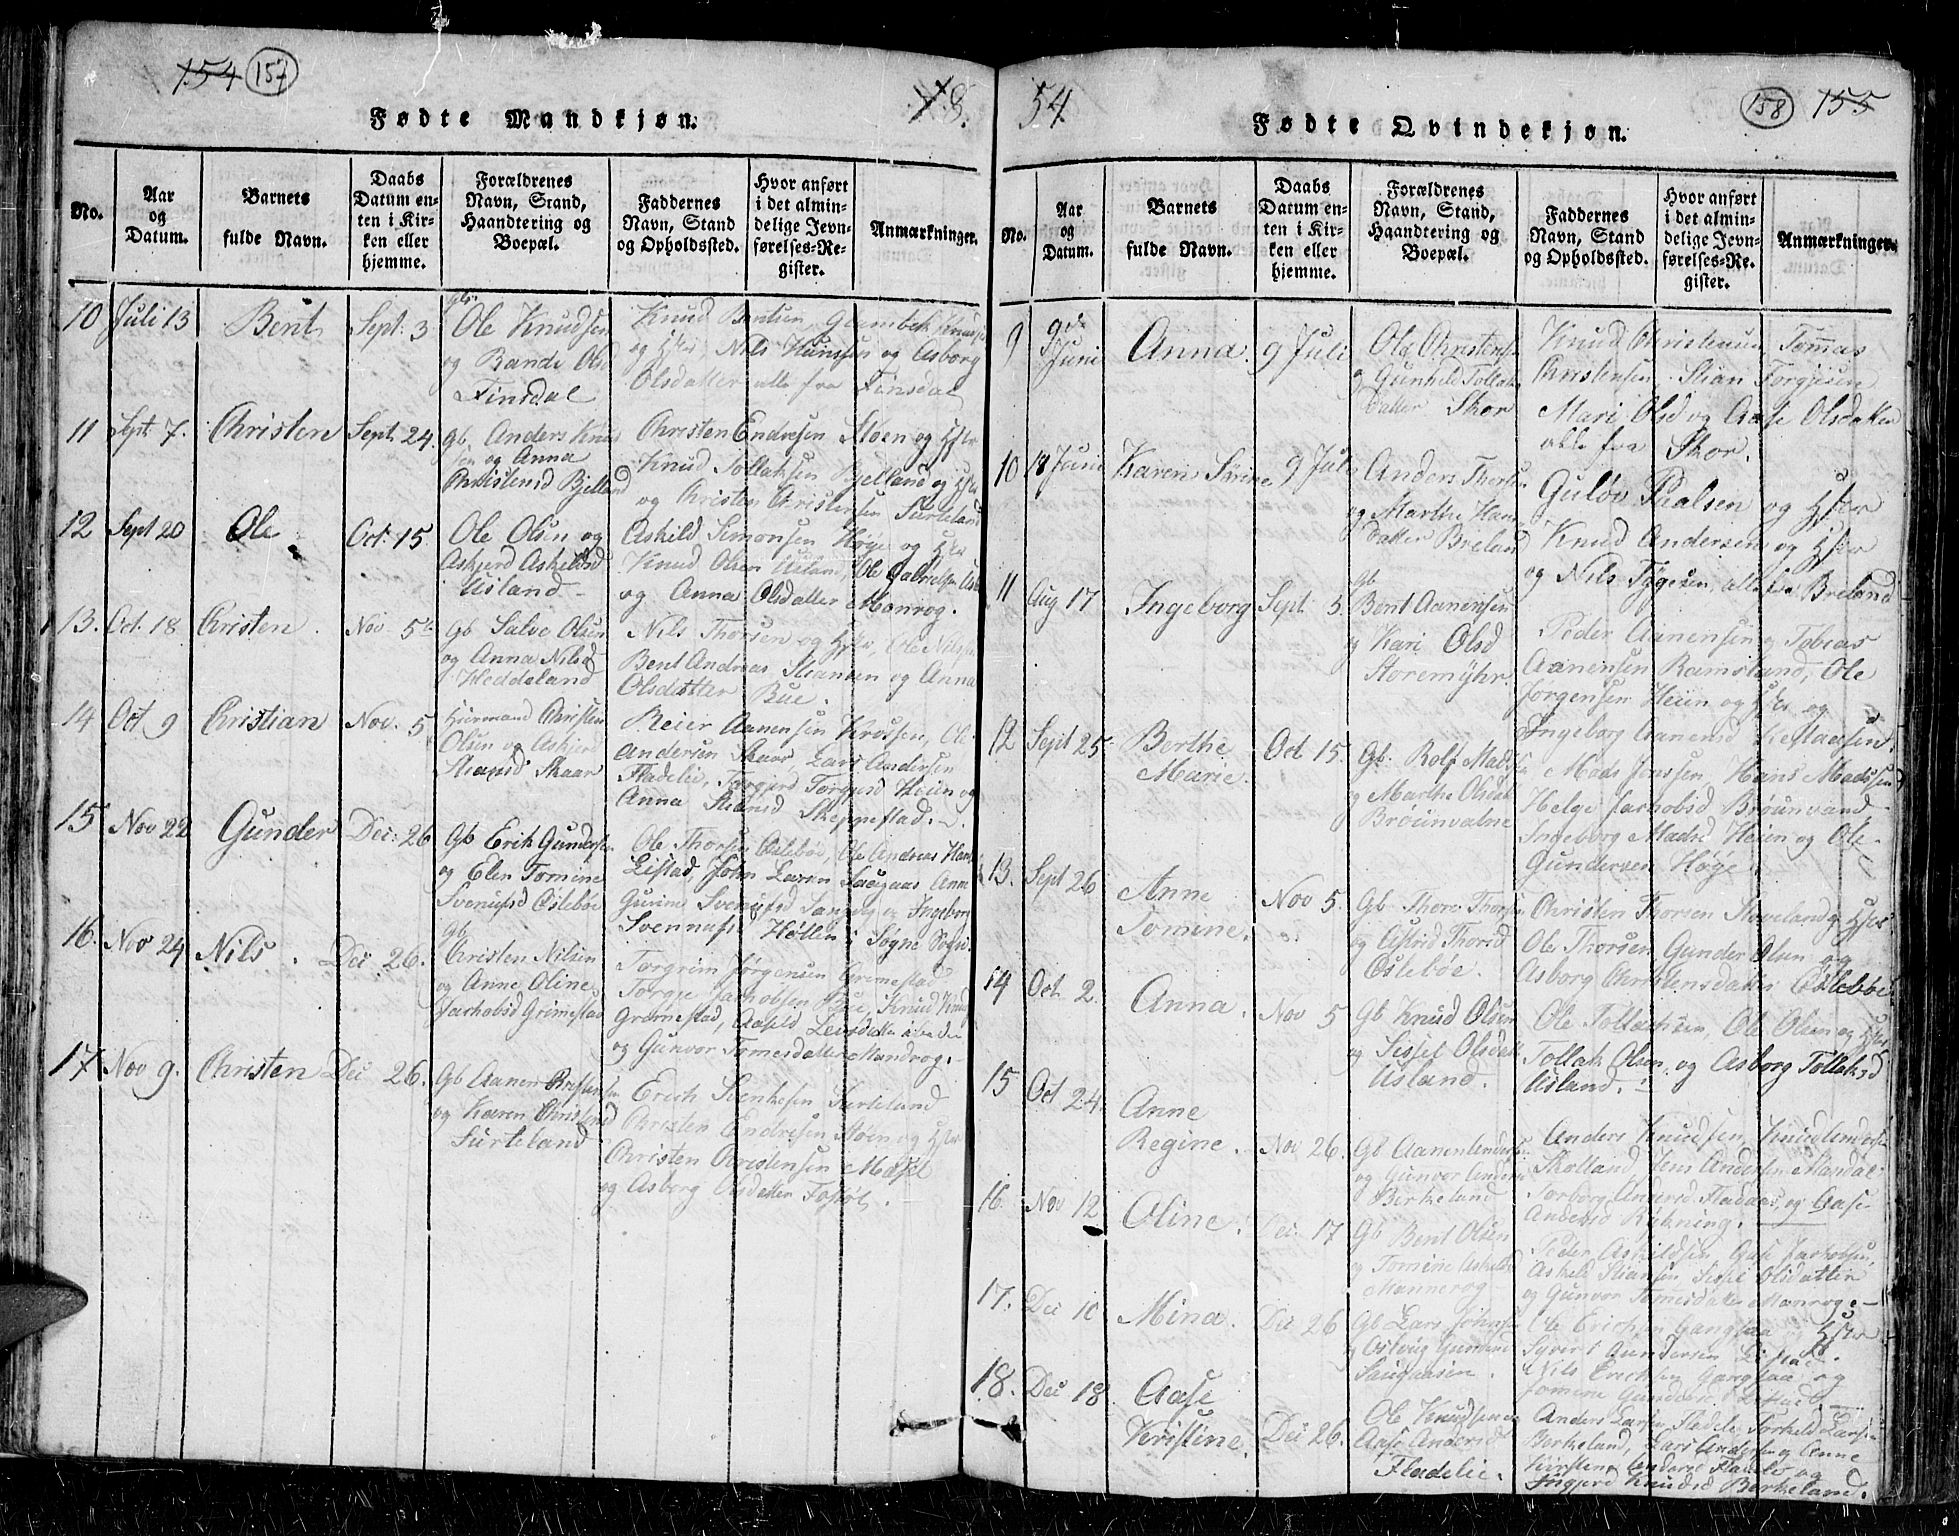 154 157
18.
54
158 155
Fødte Mandkjøn.
No.
Aar og Datum.
Barnets fulde Navn.
Daabs Datum enten i Kirken eller hjemme.
Forældrenes Navn, Stand, Haandtering og Boepæl.
Faddernes Navn, Stand og Opholdssted.
Hvor anført i det almindelige Jevnførelses-Register.
Anmærkninger.
10 Juli 13 Bent Sept. 3
Gb. Ole Knudsen
og Rande Olsd
Finsdal
Knud Bentsen
og Hstr, Nils Hansen og Asborg
Olsdatter alle fra Finsdal
11 Sept 7. Christen Sept. 24.
Gb. Anders Knud
sen og Anna
Christensd Bjelland
Christen Endresen Støen og Hstr
Knud Tollaksen Bjelland og Hstr
og Christen Christensen Surteland
12 Sept 20 Ole Oct. 15
Ole Olsen og
Askjerd Askildsd
Uisland
Askild Simonsen Høge og Hstr
Knud Olsen Uisland, Ole Gabrielsen
og Anna Olsdatter Monrog.
13. Oct. 18 Christen. Nov. 5
Gb Salve Olsen
og Anna Nilsd
Heddeland
Nils Thorsen og Hstr, Ole Nilsen
Bent Andreas Stiansen og Anna
Olsdatter Bue.
14 Oct 9 Christian Nov. 5
Huusmand Christen
Olsen og Askjerd
Stiansd Skaar
Reier Aanensen Krossen, Ole
Andersen Skaar, Lars Andersen
Fladelie, Torgjerd Torgjusd Heien og
Anna Stiansd Skeppestad.
15 Nov 22 Gunder Dec: 26
Gb Erik Gundersen
og Elen Tomine
Svenufsd Oslebøe
Ole Thorsen Oslebøe, Ole Andreas Hans
Leistad, John Larsen Saugaas Anne
Gurine Svenufsd Sangvig og Ingeborg
Svennufs Høllen i Søgne Sogn.
16. Nov 24 Nils. Dec: 26.
Gb
Christen Nilsen
og Anne Oline
Jachobsd Grimestad
Torgrim Jørgensen Grimestad
Torgje Jachobsen Bue, Knud Knud
Gremestad, Aasild Levsdatter
og Gunvor Tomesdatter Mandrog.
17 Nov 9. Christen Dec 26.
Gb Aanen
og Karen Christensd
Surteland
Erich Svenkesen Surteland
Christen Endresen Støen og Hstr
Christen Christensen Møsel
og Asborg Olsdatter Fossøl.
Fødte Qvindekjøn.
No.
Aar og Datum.
Barnets fulde Navn.
Daabs Datum enten i Kirken eller hjemme.
Forældrenes Navn, Stand, Haandtering og Boepæl.
Faddernes Navn, Stand og Opholdssted.
Hvor anført i det almindelige Jevnførelses-Register.
Anmærkninger.
9 9de Juni Anna. 9 Juli
Ole Christensen
og Gunhild Tollaks
datter Skor
Knud Christensen Tommas
Christensen, Stian Torgjesen
Mari Olsd og Aase Olsdatter
alle fra Skor.
10 18 Juni Karen Sirine 9 Juli
Anders Thorsen
og Marthe Hans
datter Breland
Guløv Pialsen og Hstr
Knud Andersen og Hstr
og Nils Tygesen, alle fra Breland
11 Aug 17 Ingeborg Sept 3.
Gb
Bent Aanensen
og Kari Olsd
Storemyhr
Peder Aanensen og Tobias
Aanensen Ramsland, Ole
Jørgensen Heien og Hstr og
Ingeborg Aanensd
12 Sept 25. Berthe Marie. Oct 15.
Gb. Rolf Mads
og Marthe Olsdat
Brøunvalne
Mads Jonssen, Hans Madssen
Helge Jachobsd Brøunvand
Ingeborg Madsd Heien og Ole
Gundersen Høge.
13. Sept 26 Anne Tomine. Nov 5.
Gb Thore Thorsen
og Astrid Thorsd
Oslebøe.
Christen Thorsen Stoveland og Hstr
Ole Thorsen Gunder Olsen og
Asborg Christensdatter Oslebøe
14 Oct. 2. Anna. Nov 5
Gb Knud Olsen
og Sissel Olsdatt
Uisland.
Ole Tollachsen, Ole Olsen og Hstr
Tollak Olsen og Asborg Tollaksd
Uisland.
15 Oct 24. Anne Regine. Nov 26.
Gb Aanen Anders
og Gunvor Anders
Berkeland
Anders Knudsen, Knud Anders
Skolland, Jens Andersen Mandal
Torborg Andersd Fladaas, og Aase
Andersd Røkning.
16. Nov 12 Oline. Dec. 17
Gb Bent Olsen
og Tomine Askilds
Mannerog
Peder Askildsen, Aase Jachobsen,
Askild Stiansen, Sissel Olsdatter
og Gunvor Tomesdatter Monrog.
17. Dec 10 Mina. Dec 26
Gb Lars Johns
og Ostvig Gundersd
Saughasen.
Ole Erichsen Gangsaa og Hstr
Syvert Gundersen Listad.
Nils Erichsen Gangsaa og
Tomine Gundersd
18. Dec 18 Aase Kristine. Dec 26.
Ole Knudsen og
Aase Andersd
Fladelie.
Anders Larsen Fladelie, Torkild Larsen
Berkeland, Lars Andersen og Anne
Kirstine Andersd Fladelie og
Ingjerd Knudsd Berkeland.